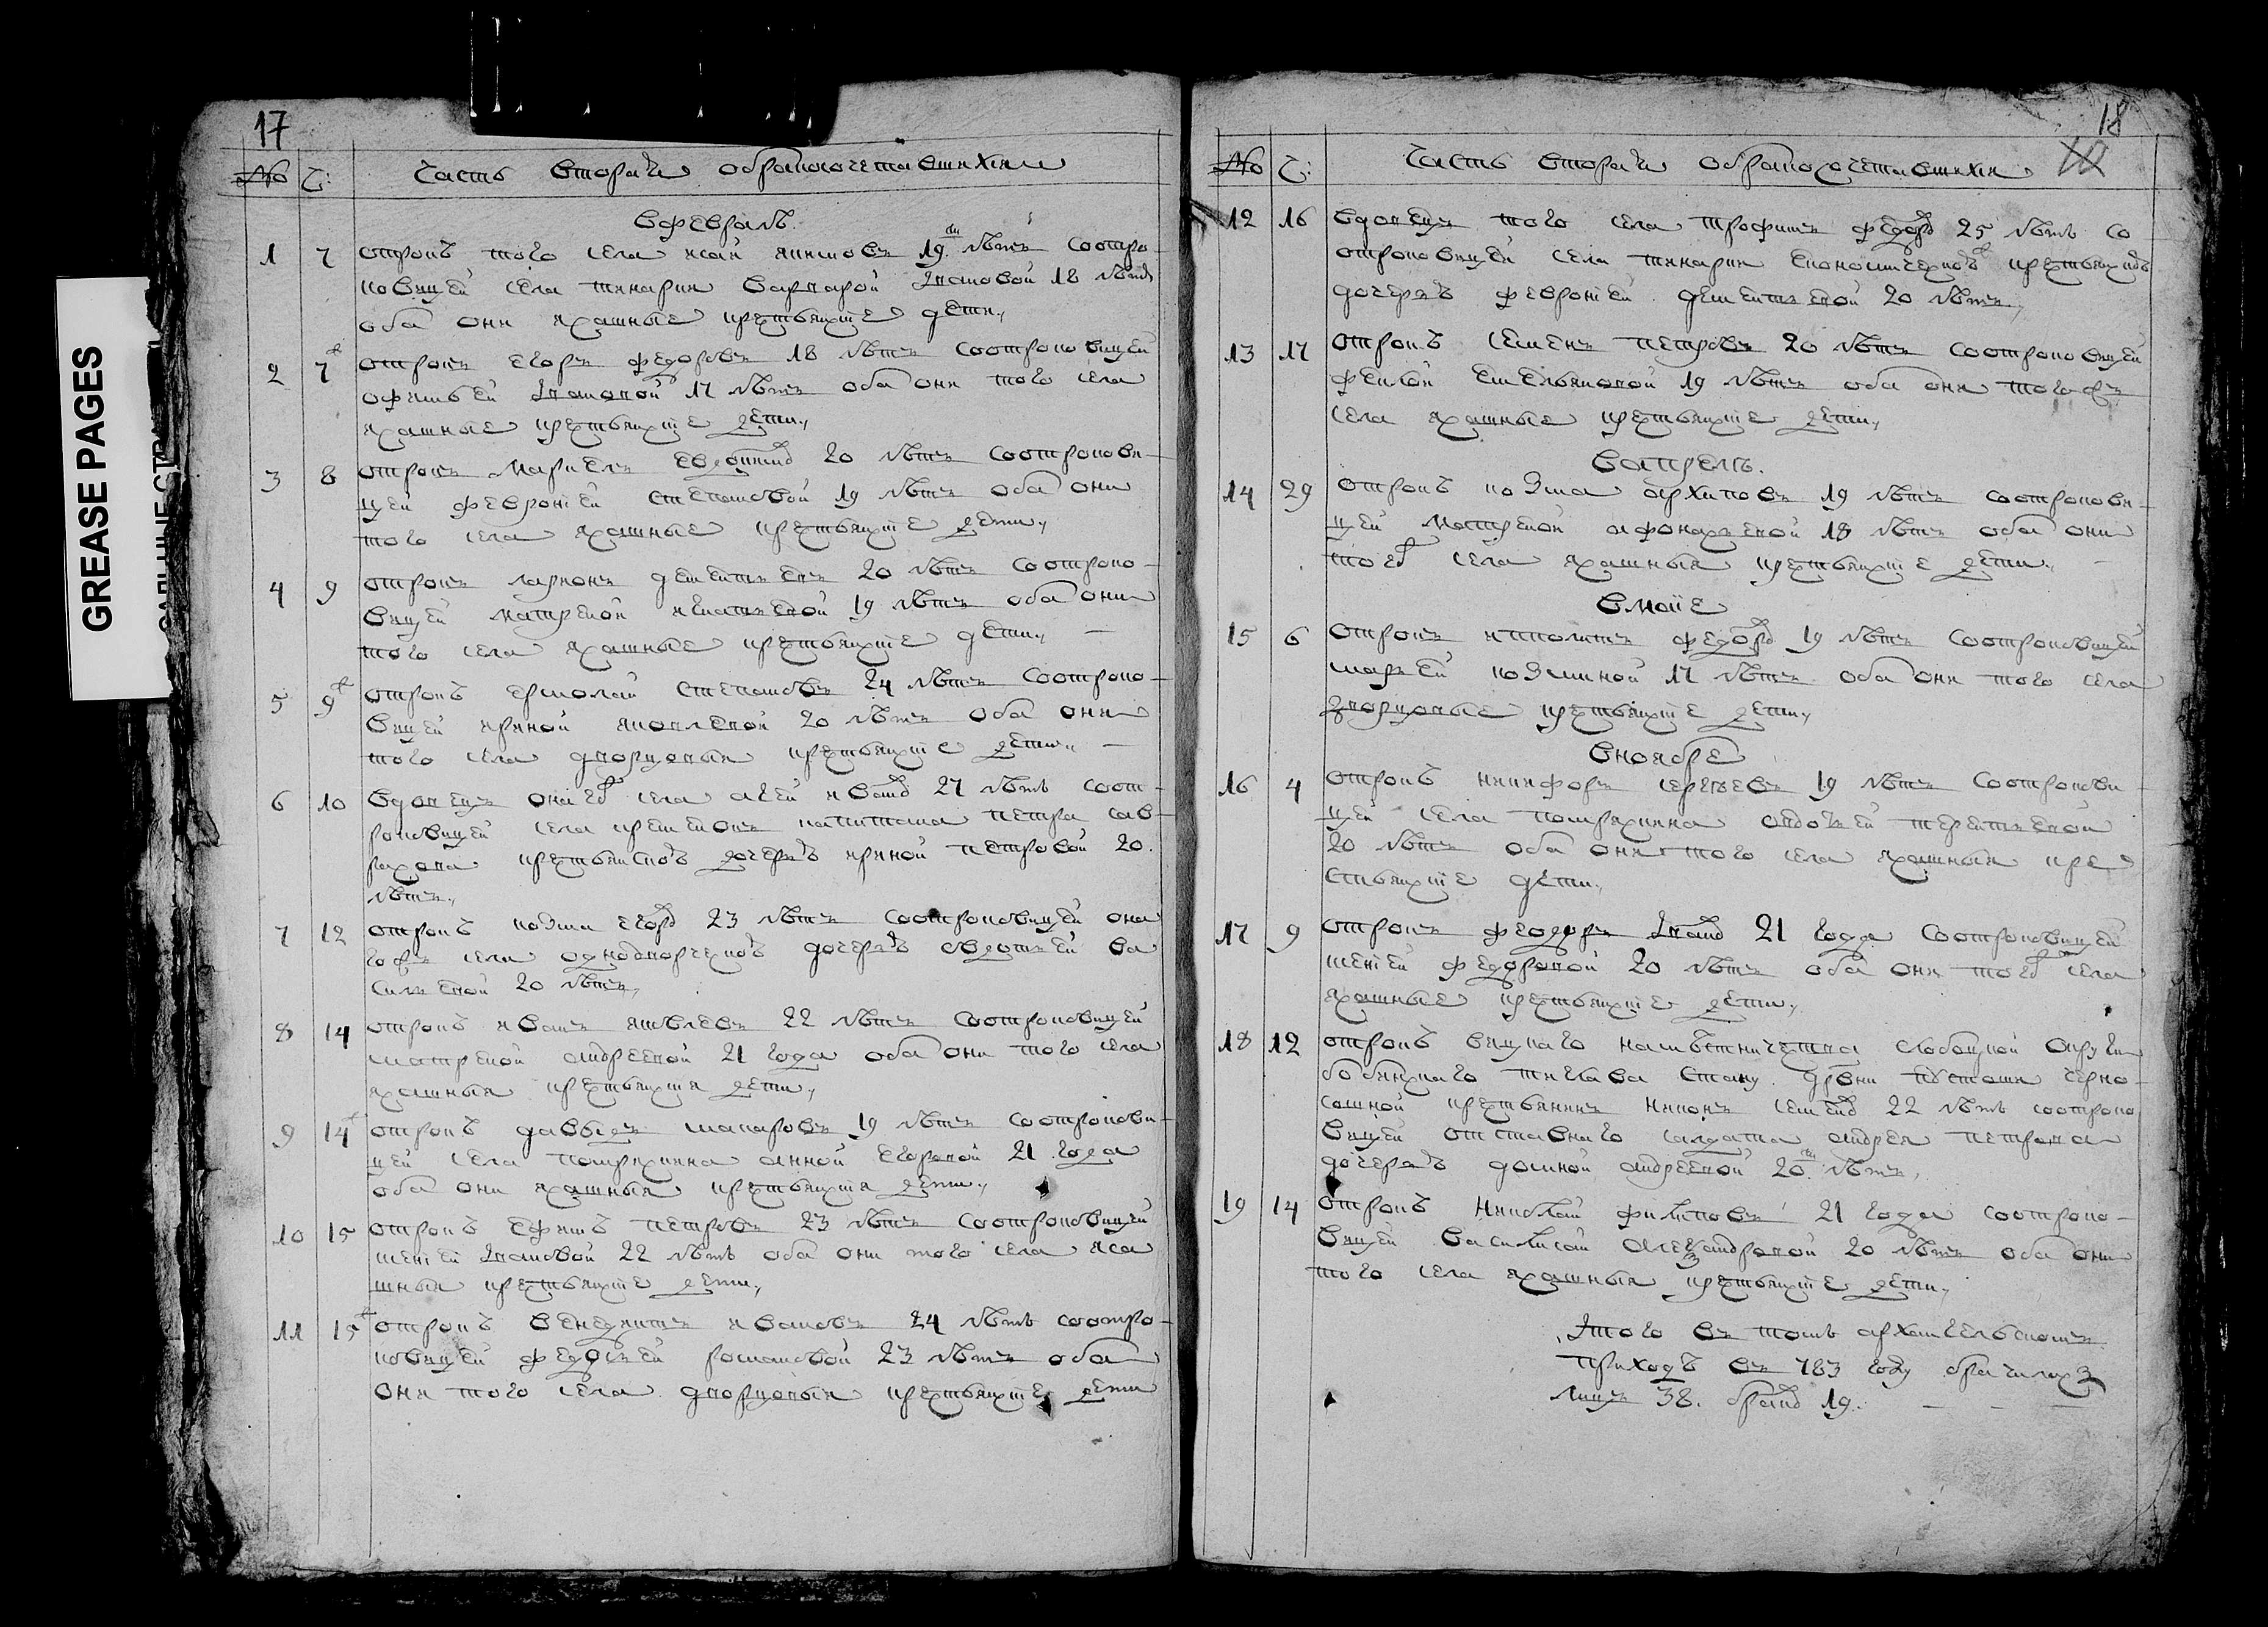 GREASE PAGES
17
№ Ч: Часть вторая о бракосочетавшихся
в феврале
1 7 отрокъ того села исай якимовъ 19ти летъ с отро-
ковицей села пинарки варварой ивановой 18 летъ
оба они ясашные крестьянские дети,
2 7 отрокъ егоръ федоровъ 18 летъ с отроковицей
офимьей ивановой 17 летъ оба они того села
ясашные крестьянские дети,
3 8 отрокъ маркелъ 20 летъ с отрокови-
цей февронiей степановой 19 летъ оба они
того села ясашные крестьянские дети,
4 9 отрокъ ларионъ дементьевъ 20 летъ с отроко-
вицей матреной игнатьевой 19 летъ оба они
того села ясашные крестьянские дети,
5 9 отрокъ ермолай степановъ 24 летъ с отроко-
вицей ириной яковлевой 20 летъ оба они
того села дворцовыя крестьянские дети,
6 10 вдовецъ онаго села агей ивановъ 27 летъ с от-
роковицей села кременокъ капитана петра
крестьянской дочерью ириной петровой 20
летъ,
7 12 отрокъ козма егоровъ 23 летъ с отроковицей она
гожъ села однодворческой дочерью овдотьей ва
сильевой 20 летъ,
8 14 отрокъ иванъ яковлевъ 22 летъ с отроковицей
матреной андреевой 21 года оба они того села
ясашныя крестьянския дети,
9 14 отрокъ давыдъ макаровъ 19 летъ с отрокови-
цей села помряскина анной егоровой 21 года
оба они ясашныя крестьянския дети,
10 15 отрокъ ефимъ петровъ 23 летъ с отроковицей
ивановой 22 летъ оба они того села яса
шныя крестьянские дети,
11 15 отрокъ венедиктъ ивановъ 24 летъ с отро-
ковицей федосьей романовой 23 летъ оба
они того села дворцовыя крестьянские дети
18
№ Ч: Часть вторая о бракосочетавшихся
12 16 вдовецъ того села трофимъ федоровъ 25 летъ со
отроковицей села пинарки економической крестьянской
дочерью февронiей дементьевой 20 летъ,
13 17 отрокъ семенъ петровъ 20 летъ с отроковицей
феклой емельяновой 19 летъ оба они того жъ
села ясашные крестьянские дети,
в апреле.
14 29 отрокъ козма архиповъ 19 летъ с отрокови-
цей матреной афонасьевой 18 летъ оба они
того села ясашныя крестьянские дети,
в маiе
15 6 отрокъ ипполитъ федоровъ 19 летъ с отроковицей
марьей козминой 17 летъ оба они того села
дворцовые крестьянские дети,
в ноябре
16 4 отрокъ никифоръ сергеевъ 19 летъ с отрокови-
цей села помряскина авдотьей терентьевой
20 летъ оба они того села ясашныя кре
стьянские дети,
17 9 отрокъ федоръ ивановъ 21 года с отроковицей
федоровой 20 летъ оба они того села
ясашные крестьянские дети,
18 12 отрокъ вяцкаго наместничества слободской округи
стану деревни черно-
сошной крестьянинъ никонъ семеновъ 22 летъ с отроко
вицей отставнаго салдата андрея петрова
дочерью домной андреевой 20ти летъ,
19 14 отрокъ николай филиповъ 21 года с отроко-
вицей василисой александровой 20 летъ оба они
того села ясашныя крестьянские дети,
Итого въ томъ архангельскомъ
приходе въ 783 году брачилось
лицъ 38. браковъ 19.